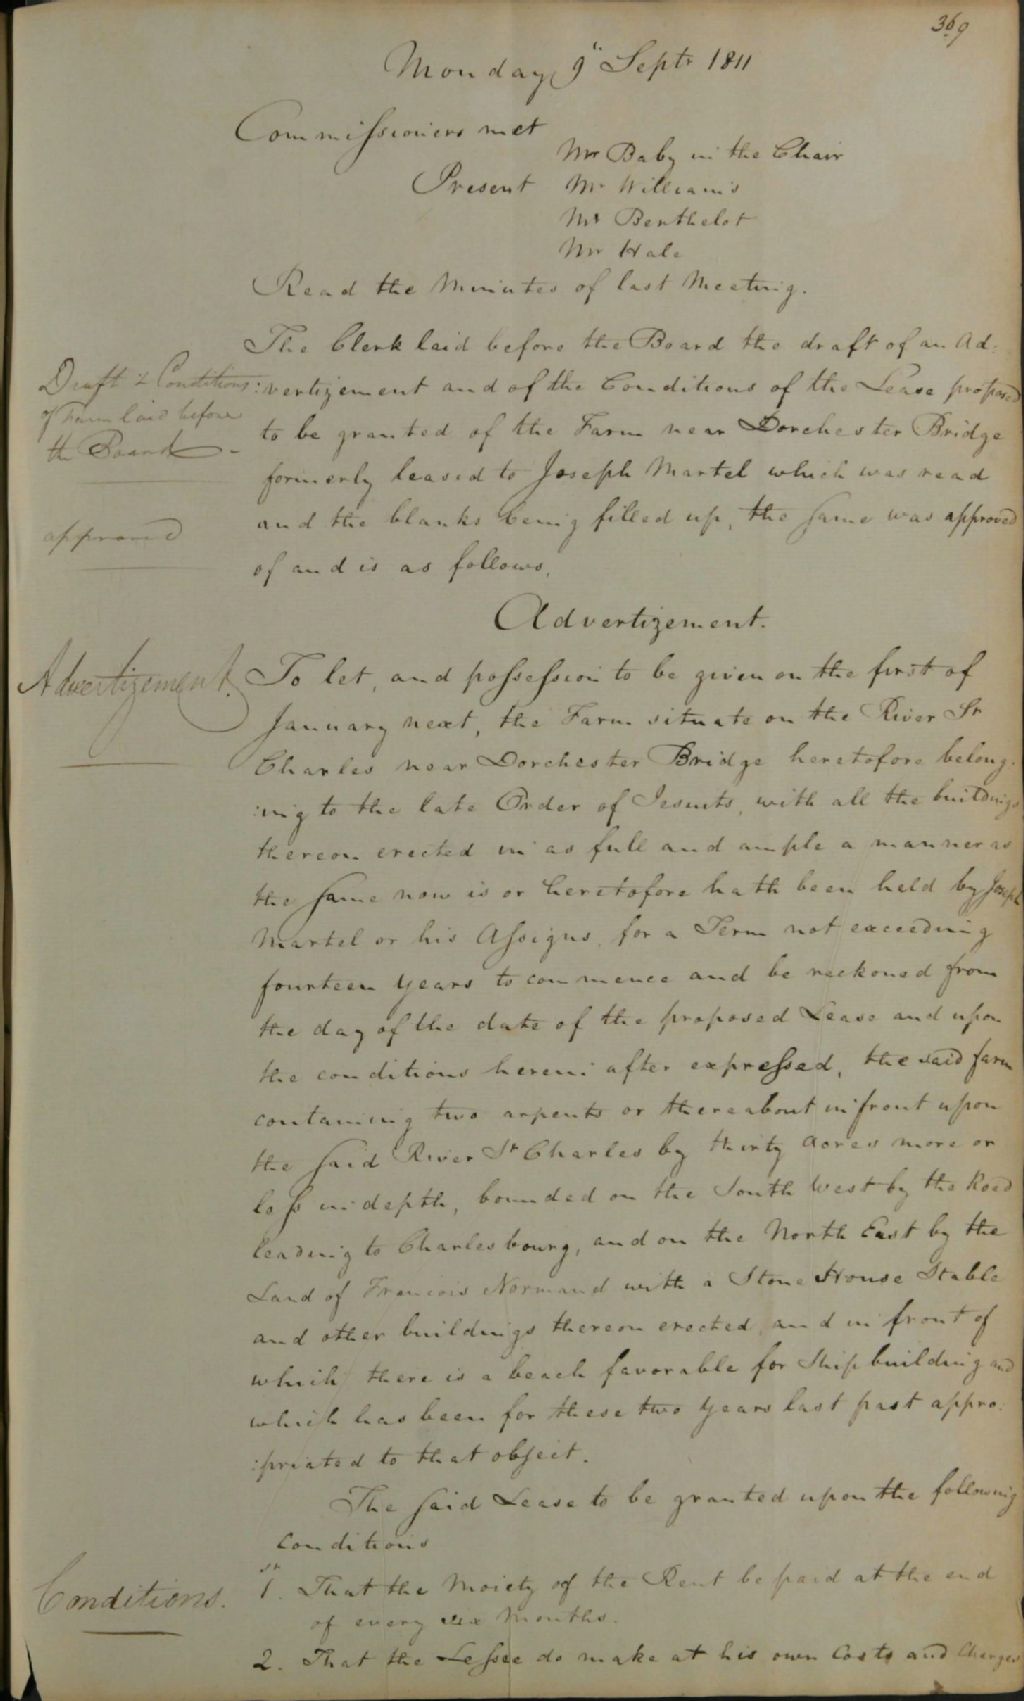 369
Monday 9th Septr 1811
Commissioners met
Mr Baby in the Chair
Present Mr Williams
Mr Berthelot
Mr Hale
Read the Minutes of last Meeting.
The Clerk laid before the Board the draft of an Ad:
Draft & Conditions
of Farm laid before
the Board
:vertizement and of the Conditions of the Lease proposed
to be granted of the Farm near Dorchester Bridge
formerly leased to Joseph Martel which was read
and the blanks being filled up, the same was approved
approved
of and is as follows.
Advertizement.
Advertizement.
To let, and possession to be given on the first of
January next, the Farm situate on the River St
Charles near Dorchester Bridge heretofore belong:
:ing to the late Order of Jesuits, with all the buildings
thereon erected in as full and ample a manner as
the same now is or heretofore hath been held by Joseph
Martel or his Assigns, for a Term not exceeding
fourteen years to commence and be reckoned from
the day of the date of the proposed Lease and upon
the conditions herein after expressed, the said farm
containing two arpents or thereabout in front upon
the said River St Charles by thirty acres more or
less in depth, bounded on the South West by the Road
leading to Charlesbourg, and on the North East by the
Land of Francois Normand with a Stone House Stable
and other buildings thereon erected and in front of
which there is a beach favorable for Ship building and
which has been for these two years last past appro:
:priated to that object.
The said Lease to be granted upon the following
conditions
Conditions.
1st. That the Moiety of the Rent be paid at the end
of every six Months.
2. That the Lessee do make at his own Costs and Charges